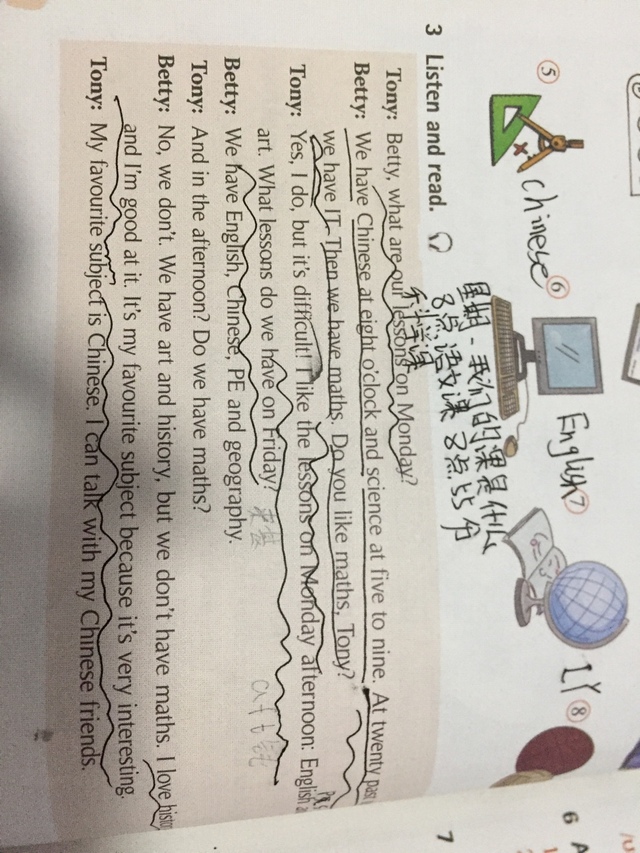 ⑤ Chinese ⑥ English 7 IY ⑧
星期一我们的课是什么
8点语文课 8点55分
科学课
3 Listen and read.
Tony: Betty, what are our lessons on Monday?
Betty: We have Chinese at eight o'clock and science at five to nine. At twenty pas
we have IT. Then we have maths. Do you like maths, Tony?
Tony: Yes, I do, but it's difficult! I like the lessons on Monday afternoon: English a
art. What lessons do we have on Friday?
Betty: We have English, Chinese, PE and geography.
Tony: And in the afternoon? Do we have maths?
Betty: No, we don't. We have art and history, but we don't have maths. I love histo
and I'm good at it. It's my favourite subject because it's very interesting.
Tony: My favourite subject is Chinese. I can talk with my Chinese friends.
6 A
7